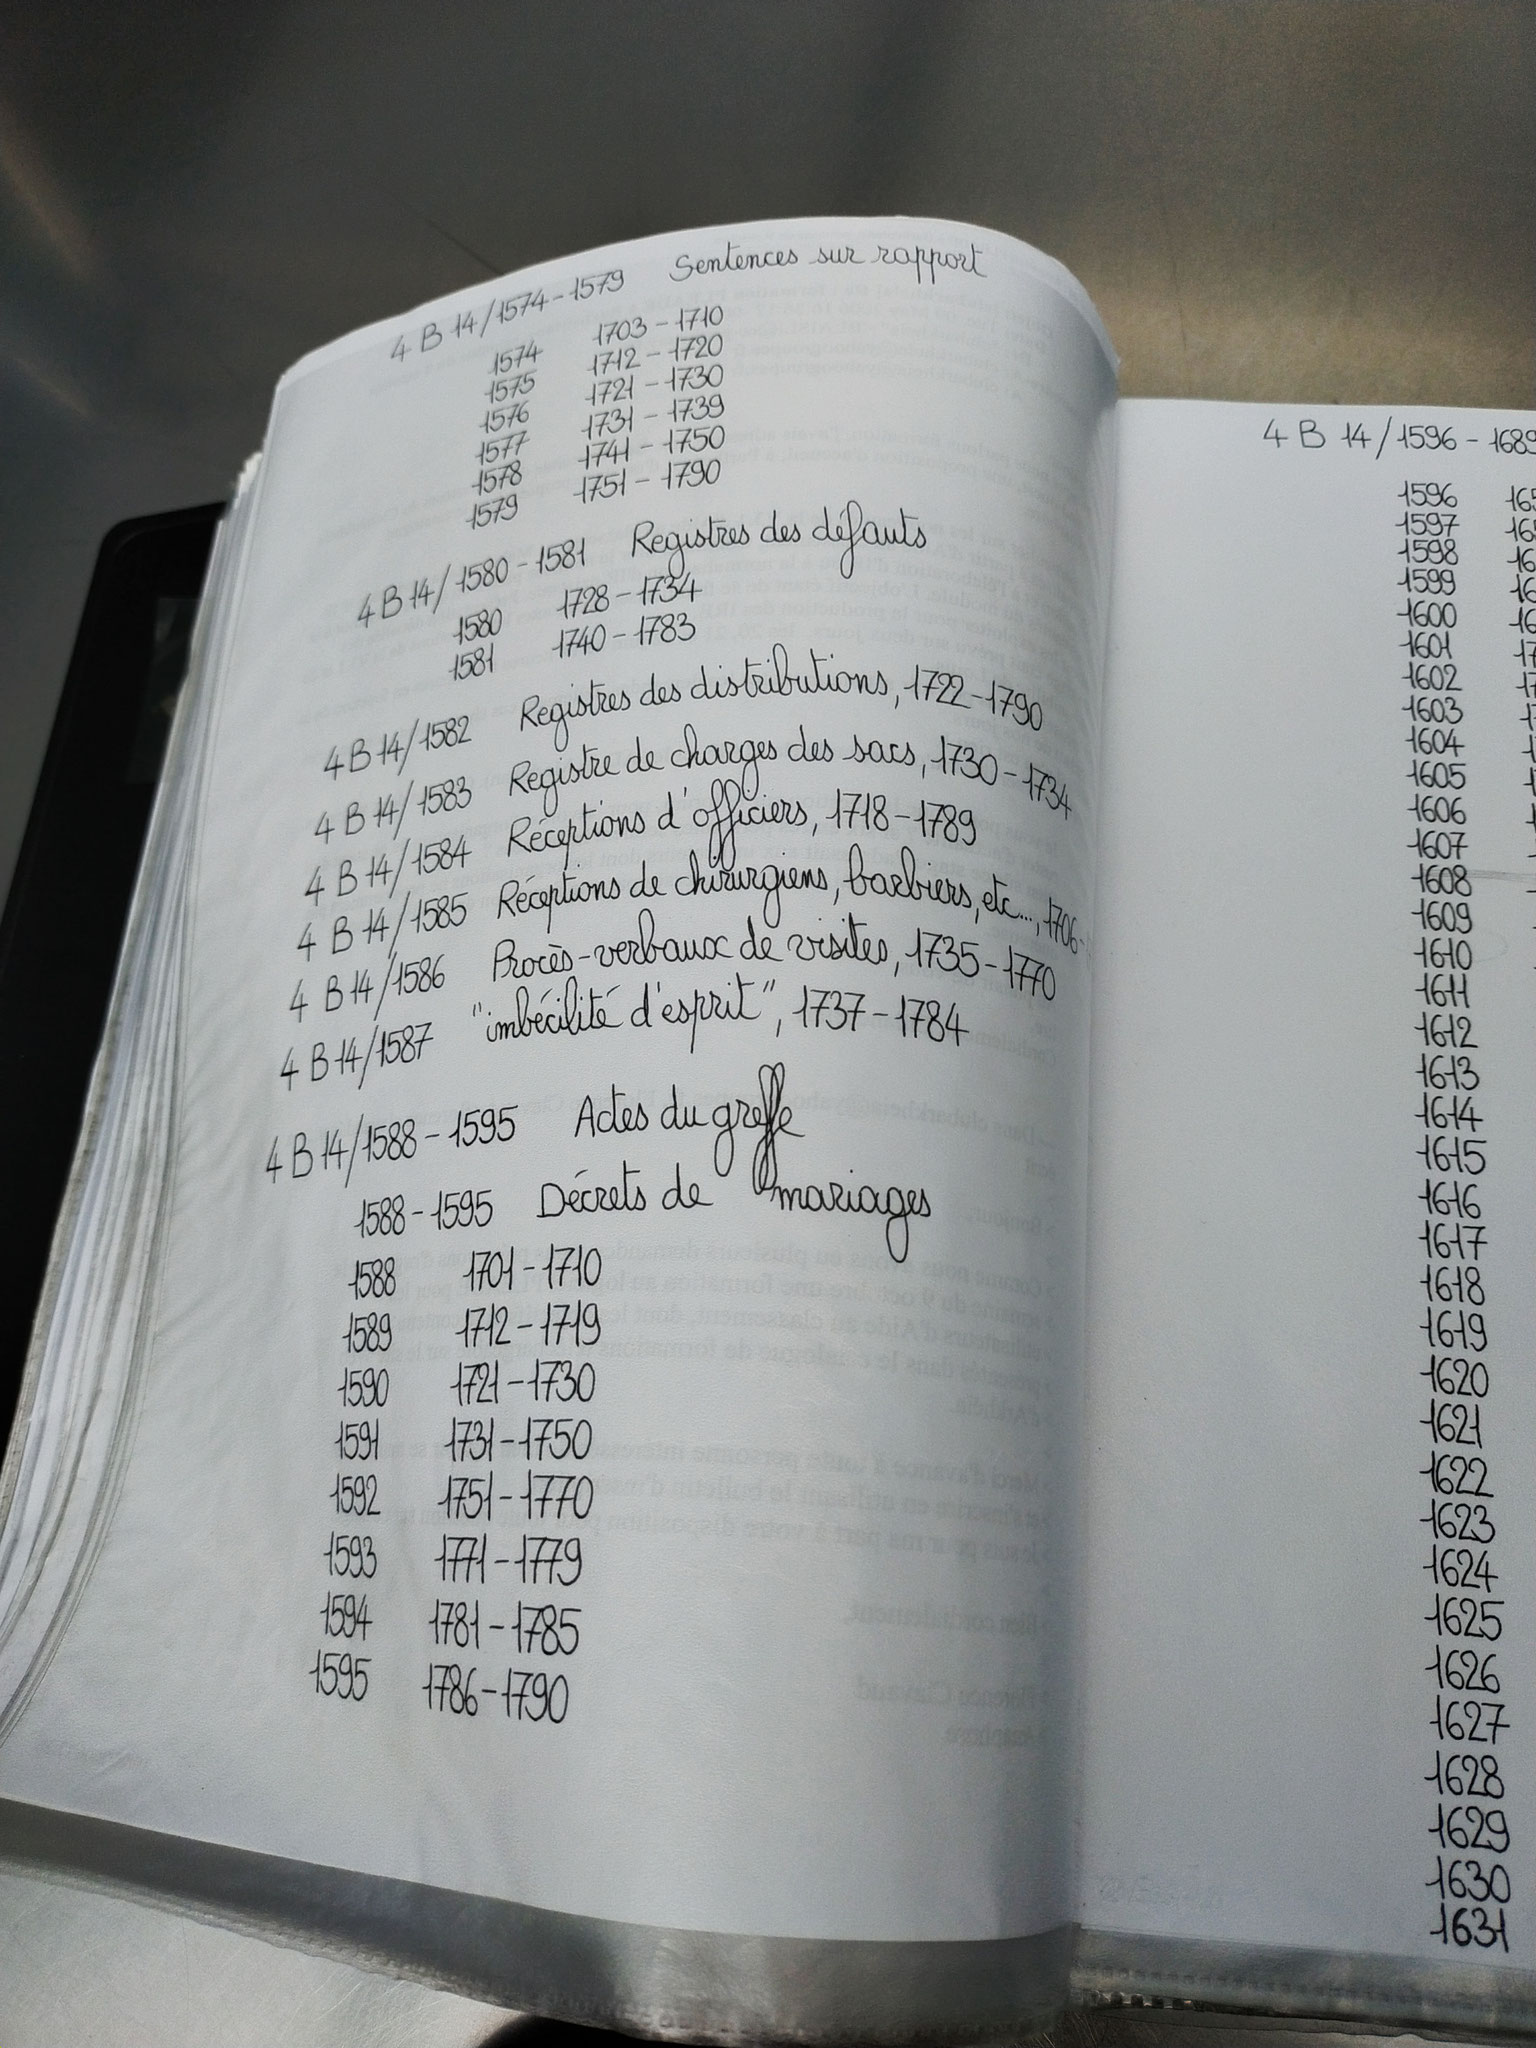 4 B 14/1574-1579 Sentences sur rapport
1574 1703-1710
1575 1712-1720
1576 1721-1730
1577 1731-1739
1578 1741-1750
1579 1751-1790
4 B 14/1580-1581 Registres des défauts
1580 1728-1734
1581 1740-1783
4 B 14/1582 Registres des distributions, 1722-1790
4 B 14/1583 Registre de charges des sacs, 1730-1734
4 B 14/1584 Réceptions d'officiers, 1718-1789
4 B 14/1585 Réceptions de chirurgiens, barbiers, etc..., 1706-
4 B 14/1586 Procès-verbaux de visites, 1735-1770
4 B 14/1587 "imbécilité d'esprit", 1737-1784
4 B 14/1588-1595 Actes du greffe
1588-1595 Décrets de mariages
1588 1701-1710
1589 1712-1719
1590 1721-1730
1591 1731-1750
1592 1751-1770
1593 1771-1779
1594 1781-1785
1595 1786-1790
4 B 14/1596-1689
1596
1597
1598
1599
1600
1601
1602
1603
1604
1605
1606
1607
1608
1609
1610
1611
1612
1613
1614
1615
1616
1617
1618
1619
1620
1621
1622
1623
1624
1625
1626
1627
1628
1629
1630
1631